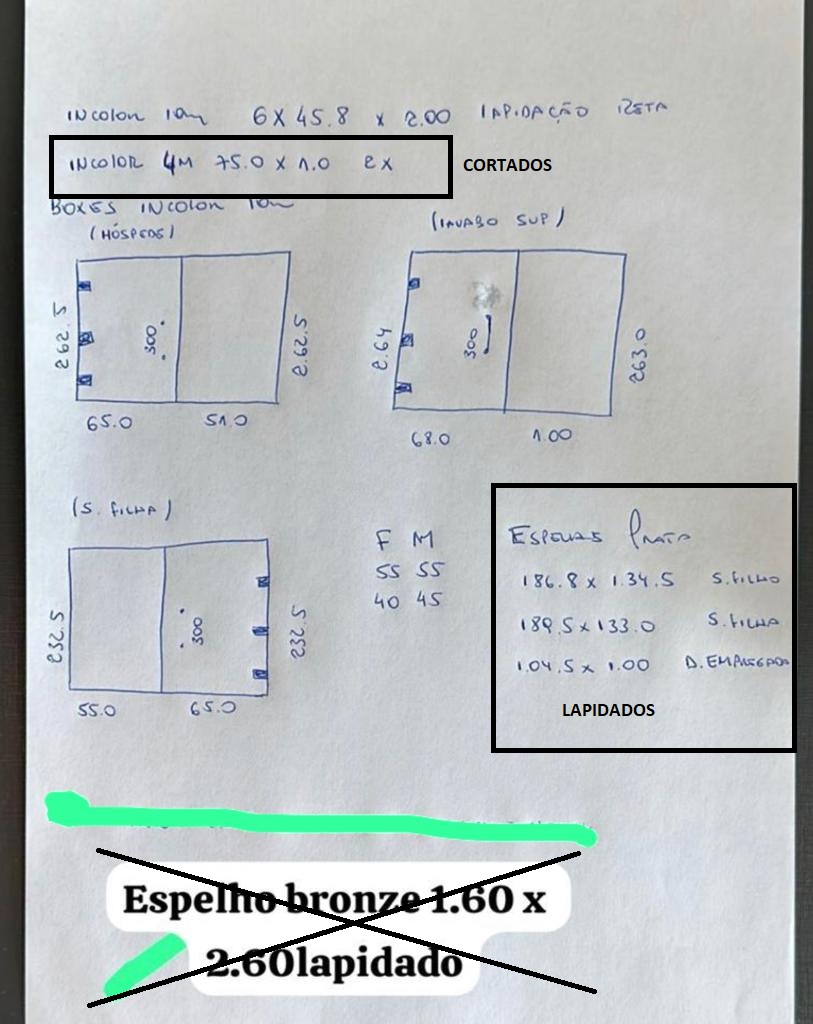 INCOLOR 10m 6 X 45.8 x 2.00 LAPIDAÇÃO RETA
INCOLOR 4M 75.0 x 1.0 2x
CORTADOS
BOXES INCOLOR 10m
(HÓSPEDE)
(LAVABO SUP)
262.5
300
2.62.5
2.64
300
263.0
65.0 51.0
68.0 1.00
(S. FILHA)
F M
55 55
40 45
232.5
300
232.5
55.0 65.0
ESPELHOS PRATA
186.8 x 1.34.5 S. FILHO
189.5 x 133.0 S. FILHA
1.04.5 x 1.00 D. EMPREGADA
LAPIDADOS
Espelho bronze 1.60 x
2.60lapidado